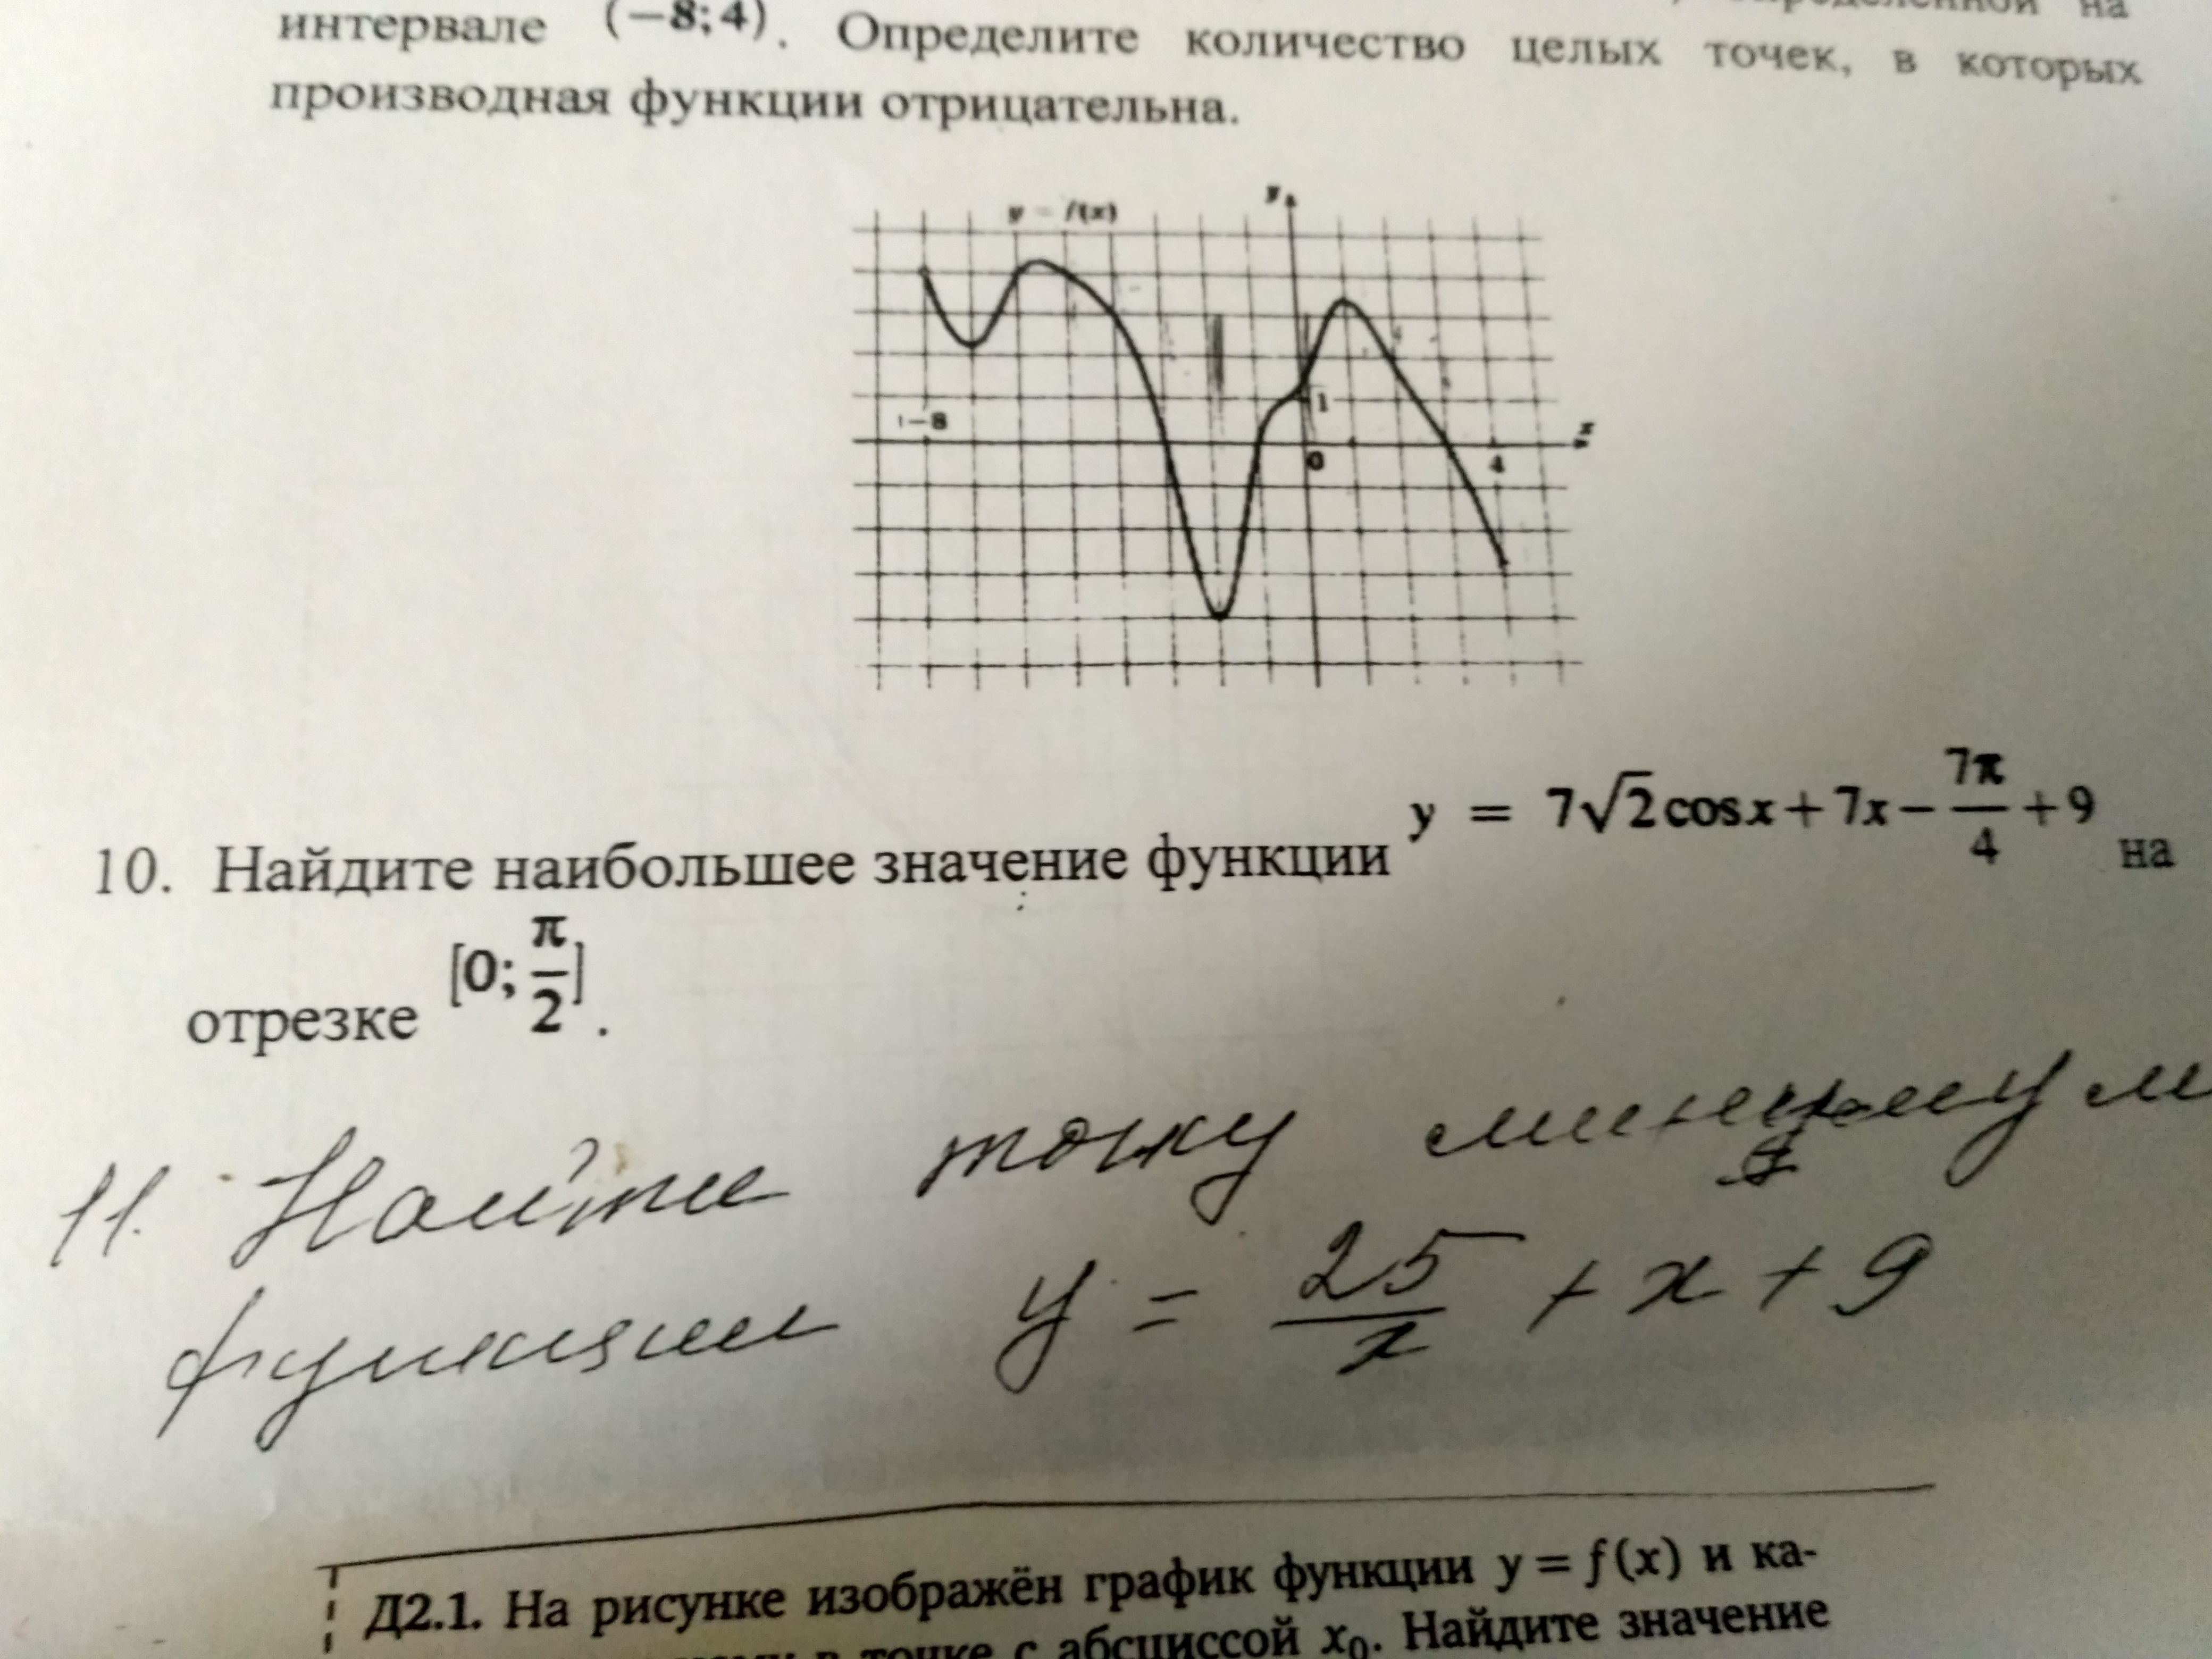 определенной на
интервале (−8; 4). Определите количество целых точек, в которых
производная функции отрицательна.
y = f(x)
y
1
−8
x
0
4
10. Найдите наибольшее значение функции y = 7√2cosx+7x−7π/4+9 на
отрезке [0; π/2].
11. Найти точку минимум
функции y = 25/x + x + 9
Д2.1. На рисунке изображён график функции y = f(x) и ка-
в точке с абсциссой x₀. Найдите значение